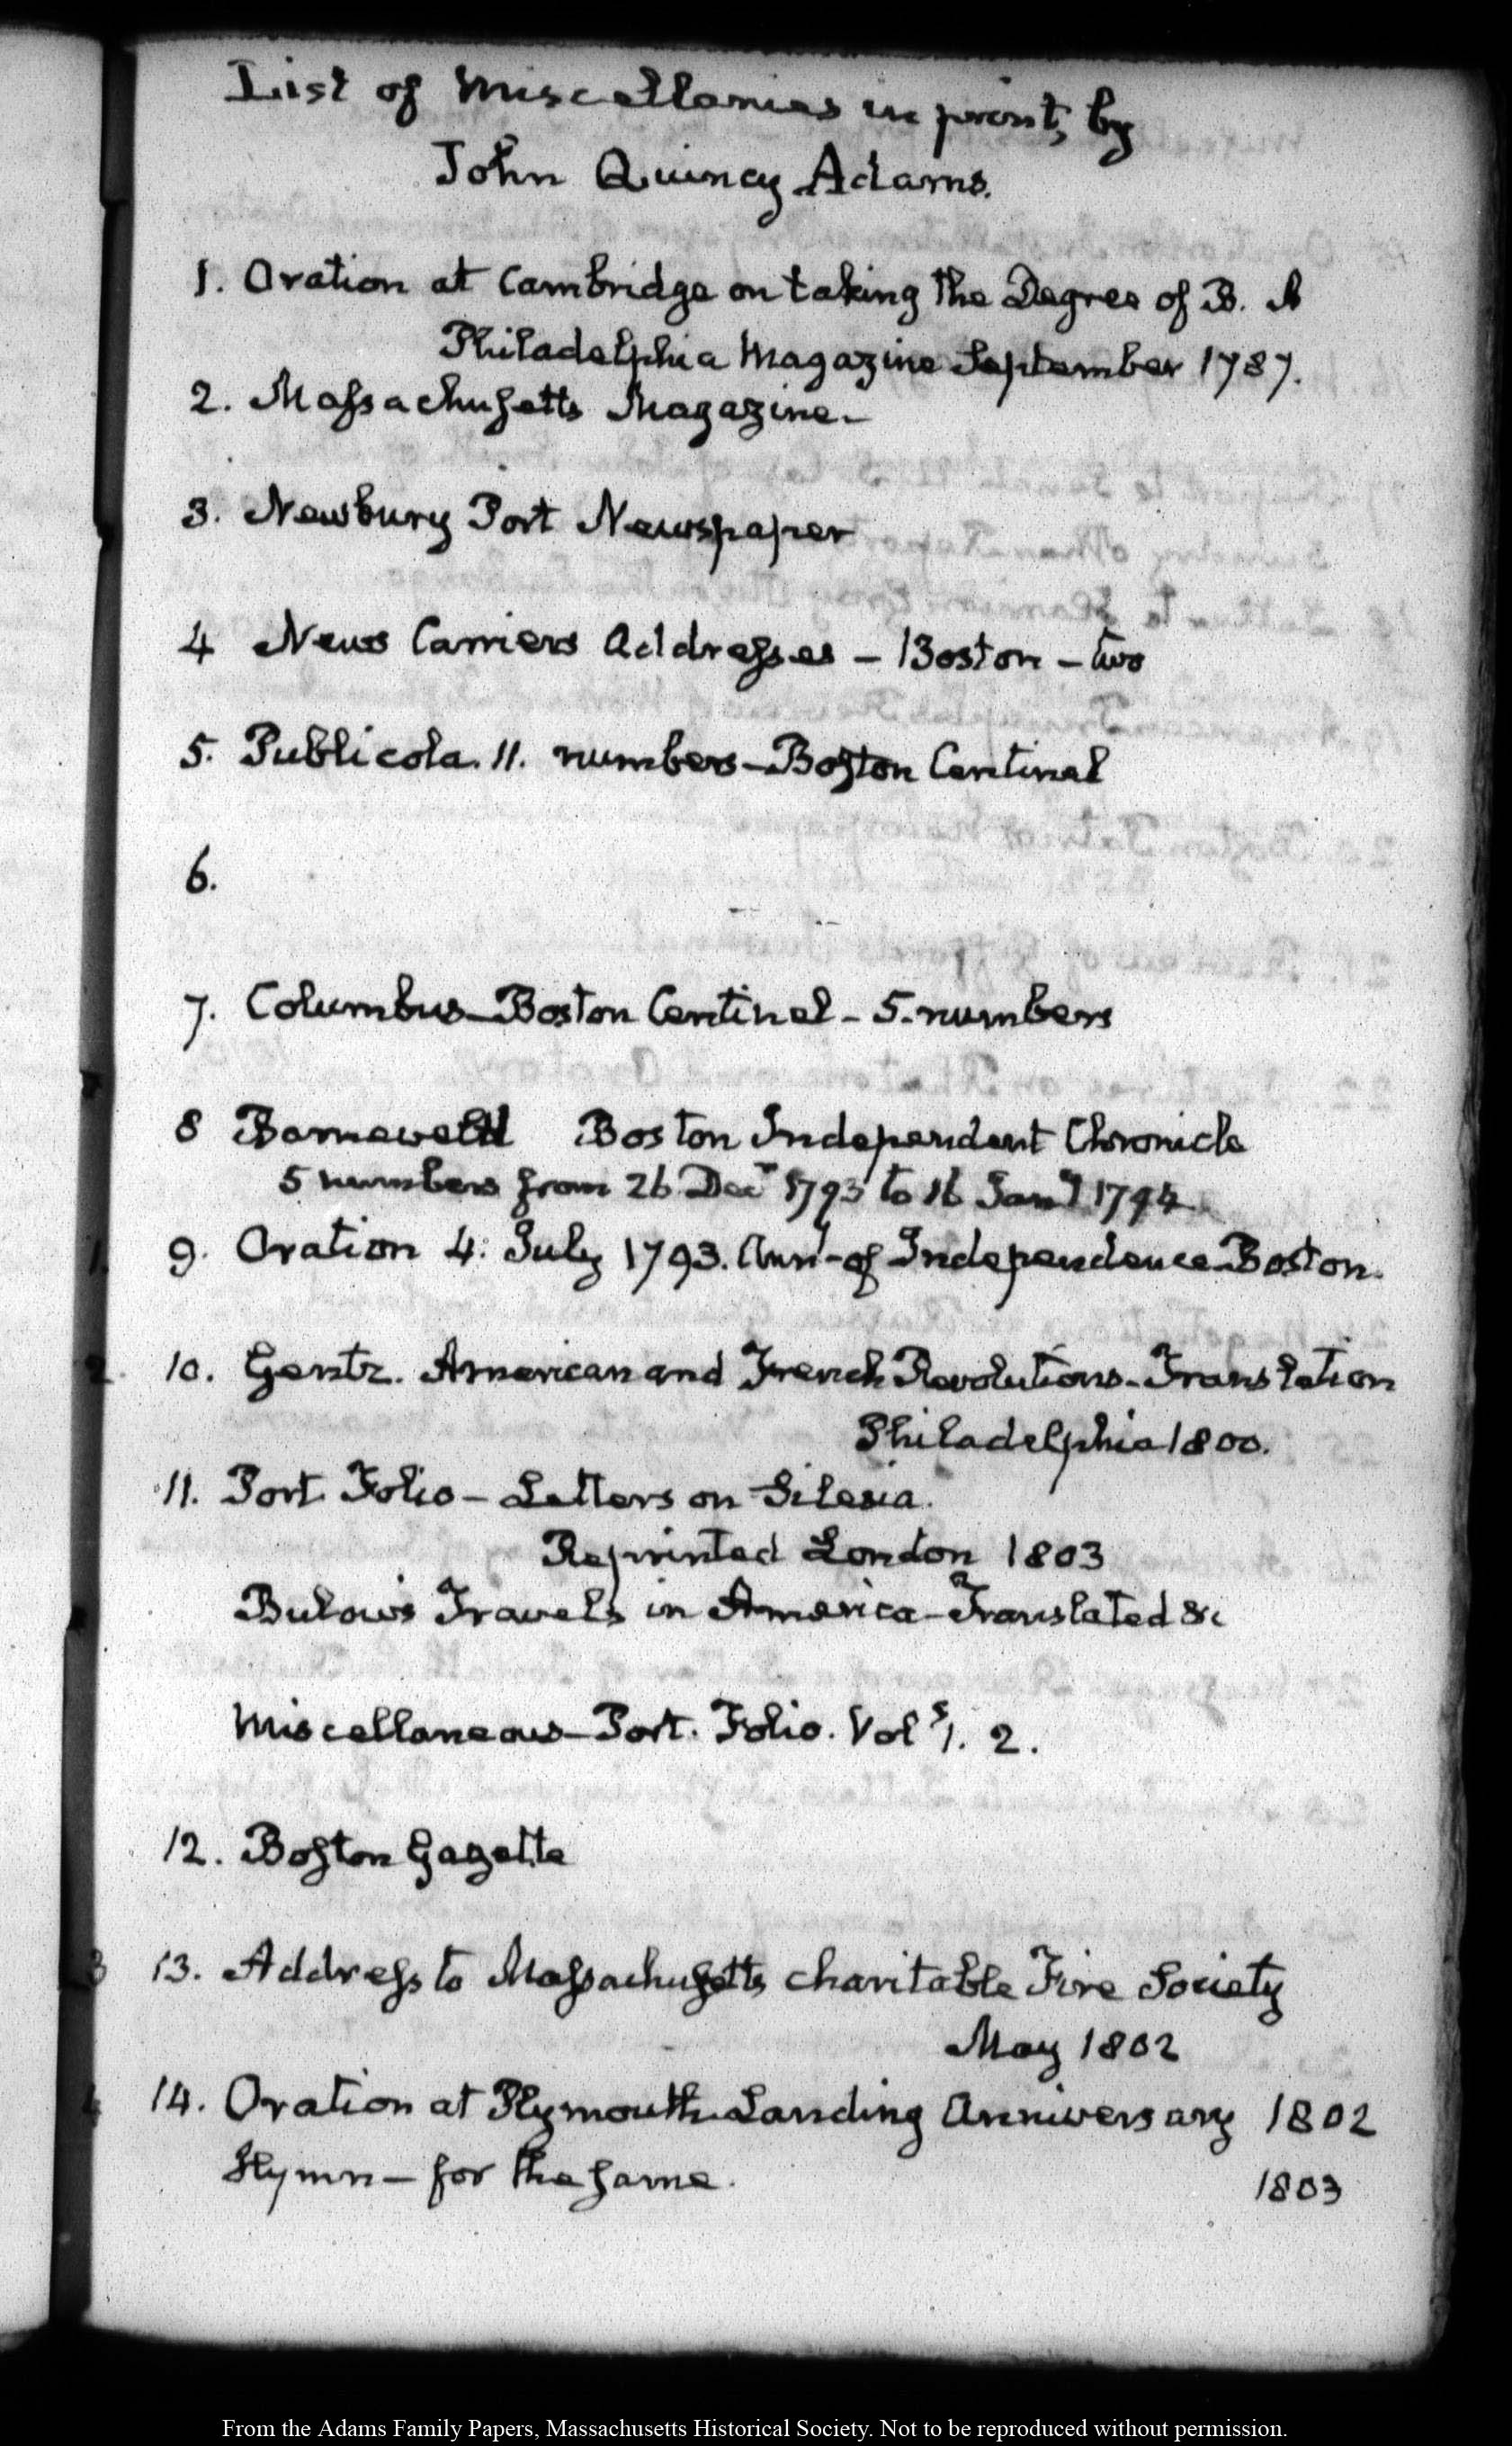 List of Miscellanies in print, by
John Quincy Adams.
1. Oration at Cambridge on taking the Degree of B. A
Philadelphia Magazine September 1787.
2. Massachusetts Magazine.
3. Newbury Port Newspaper
4 News Carriers Addresses – Boston – two
5. Publicola. 11. numbers – Boston Centinel
6.
7. Columbus – Boston Centinel – 5. numbers
8 Barneveld Boston Independent Chronicle
5 numbers from 26 Decr 1793 to 16 Jany 1794
1. 9. Oration 4. July 1793. Anny of Independence – Boston.
2. 10. Gentz. American and French Revolutions – Translation
Philadelphia 1800.
11. Port. Folio – Letters on Silesia.
Reprinted London 1803
Bulow's Travels in America – Translated &c
Miscellaneous – Port. Folio. Vols 1. 2.
12. Boston Gazette
3 13. Address to Massachusetts charitable Fire Society
May 1802
4 14. Oration at Plymouth Landing Anniversary 1802
Hymn – for the same. 1803
From the Adams Family Papers, Massachusetts Historical Society. Not to be reproduced without permission.